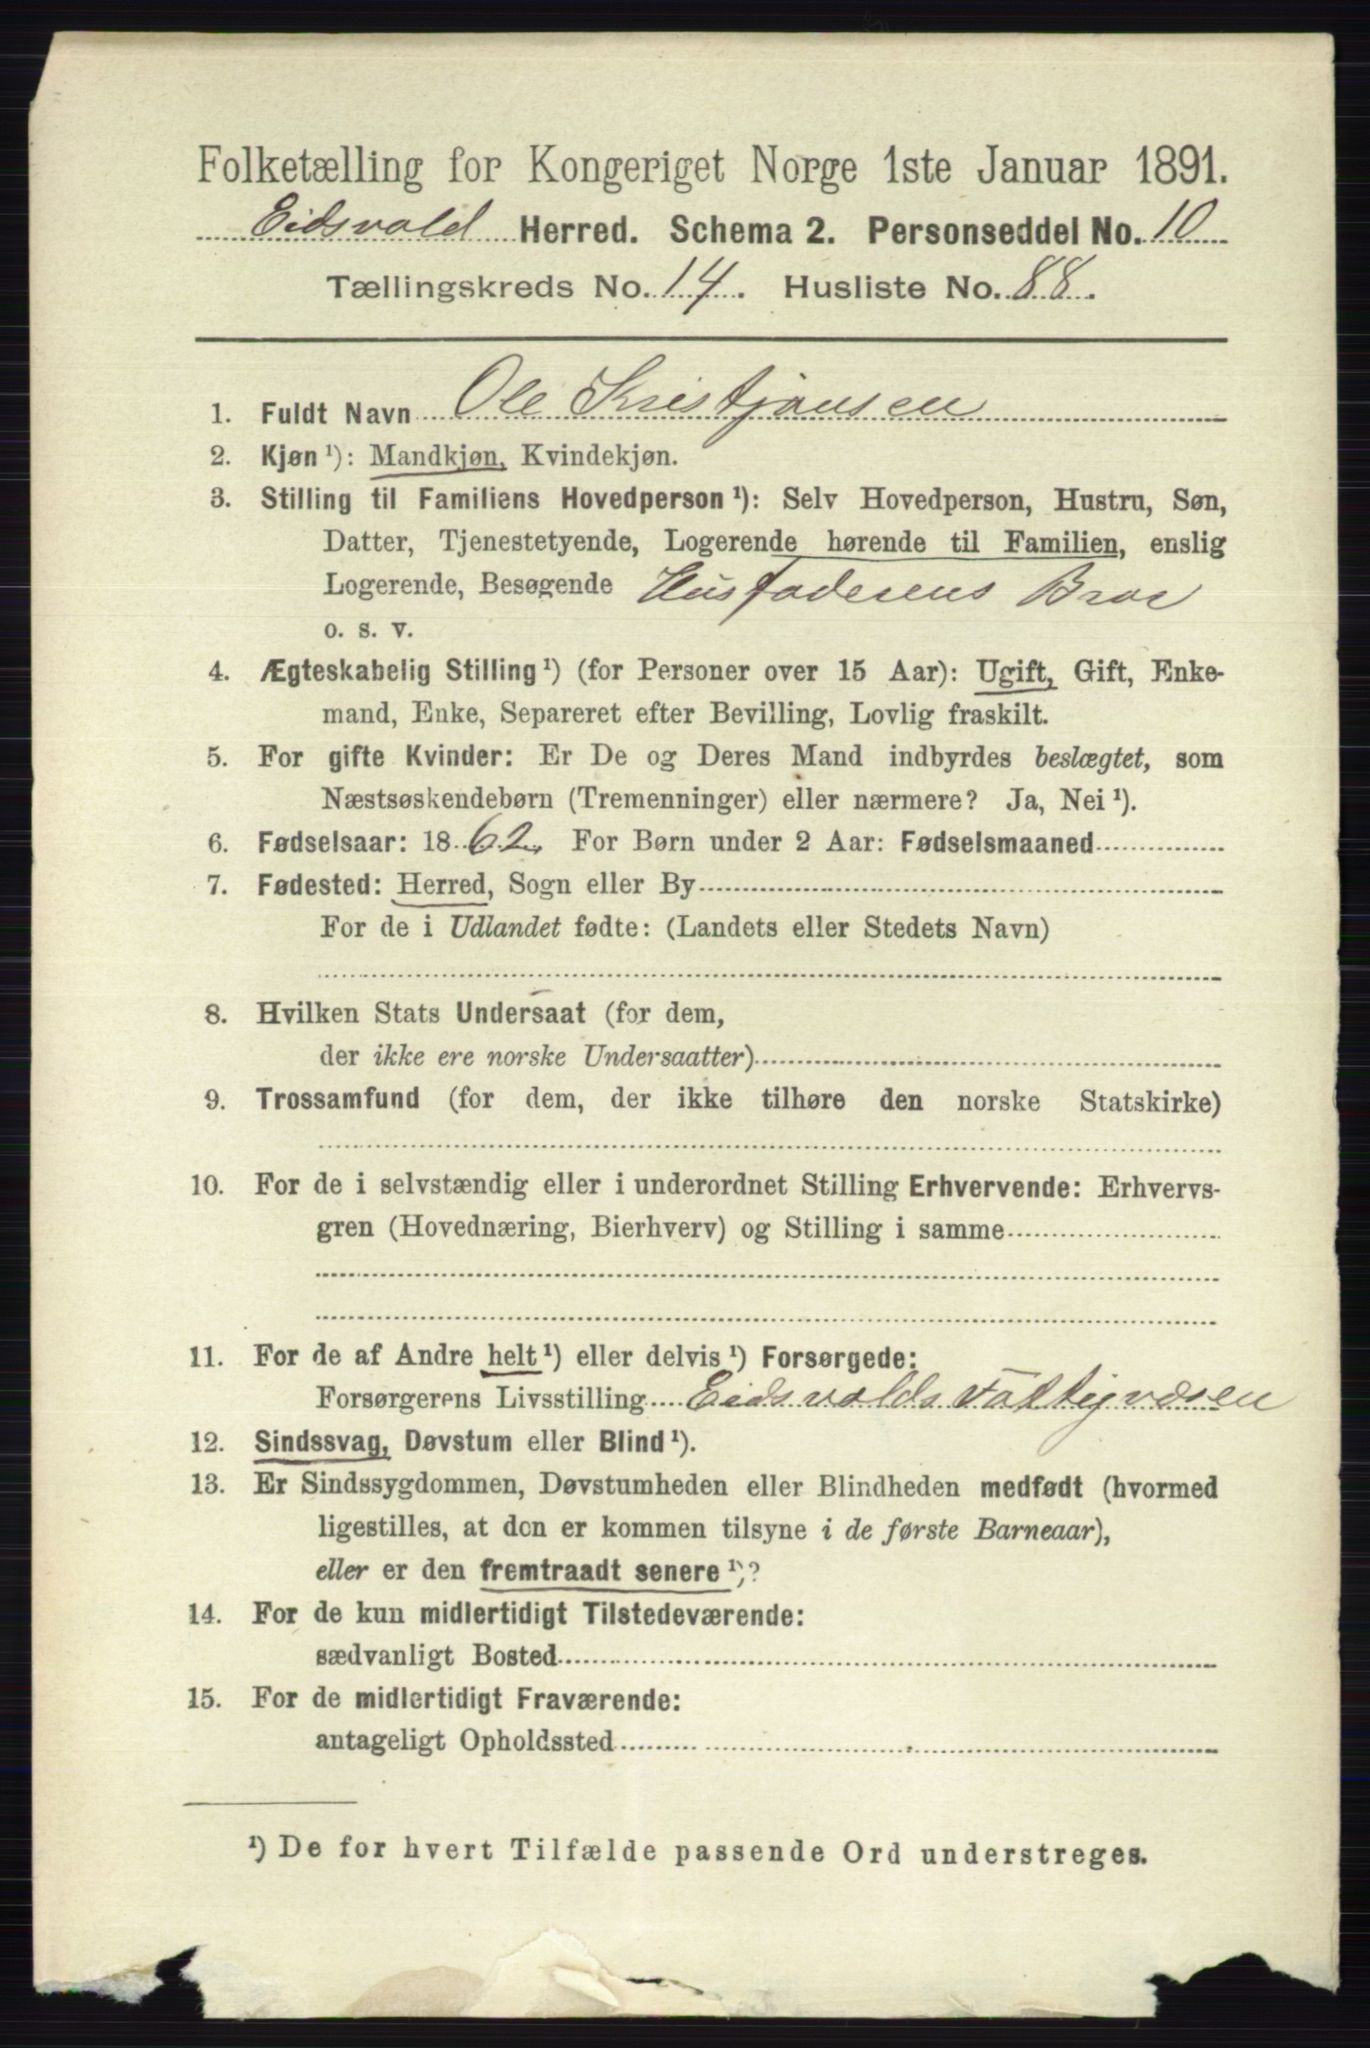 Folketælling for Kongeriget Norge 1ste Januar 1891.
Eidsvold Herred. Schema 2. Personseddel No. 10
Tællingskreds No. 14. Husliste No. 88.
1. Fuldt Navn Ole Kristjansen
2. Kjøn ¹): Mandkjøn, Kvindekjøn.
3. Stilling til Familiens Hovedperson ¹): Selv Hovedperson, Hustru, Søn,
Datter, Tjenestetyende, Logerende hørende til Familien, enslig
Logerende, Besøgende Husfaderens Bror
o. s. v.
4. Ægteskabelig Stilling ¹) (for Personer over 15 Aar): Ugift, Gift, Enke-
mand, Enke, Separeret efter Bevilling, Lovlig fraskilt.
5. For gifte Kvinder: Er De og Deres Mand indbyrdes beslægtet, som
Næstsøskendebørn (Tremenninger) eller nærmere? Ja, Nei ¹).
6. Fødselsaar: 1862. For Børn under 2 Aar: Fødselsmaaned
7. Fødested: Herred, Sogn eller By
For de i Udlandet fødte: (Landets eller Stedets Navn)
8. Hvilken Stats Undersaat (for dem,
der ikke ere norske Undersaatter)
9. Trossamfund (for dem, der ikke tilhøre den norske Statskirke)
10. For de i selvstændig eller i underordnet Stilling Erhvervende: Erhvervs-
gren (Hovednæring, Bierhverv) og Stilling i samme
11. For de af Andre helt ¹) eller delvis ¹) Forsørgede:
Forsørgerens Livsstilling Eidsvolds Fattigvæsen
12. Sindssvag, Døvstum eller Blind ¹).
13. Er Sindssygdommen, Døvstumheden eller Blindheden medfødt (hvormed
ligestilles, at den er kommen tilsyne i de første Barneaar),
eller er den fremtraadt senere ¹)?
14. For de kun midlertidigt Tilstedeværende:
sædvanligt Bosted
15. For de midlertidigt Fraværende:
antageligt Opholdssted
¹) De for hvert Tilfælde passende Ord understreges.